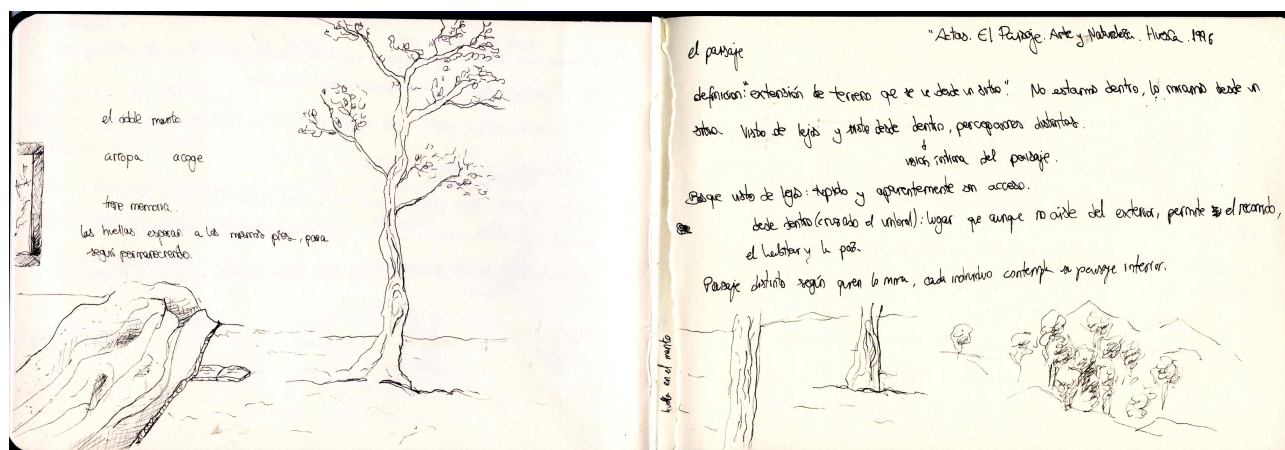 el doble manto
arropa acoge
tiene memoria.
las huellas esperan a los mismos pies, para
seguir permaneciendo.
"Actas. El Paisaje. Arte y Naturaleza. Huesca. 1996
el paisaje
definicion: "extensión de terreno que se ve desde un sitio". No estamos dentro, lo miramos desde un
sitio. Visto de lejos y visto desde dentro, percepciones distintas.
visión intima del paisaje.
Bosque visto de lejos: tupido y aparentemente sin acceso.
desde dentro (cruzado el umbral): lugar que aunque no aisle del exterior, permite el recorrido,
el habitar y la paz.
Paisaje distinto según quien lo mira, cada individuo contempla su paisaje interior.
huella en el manto